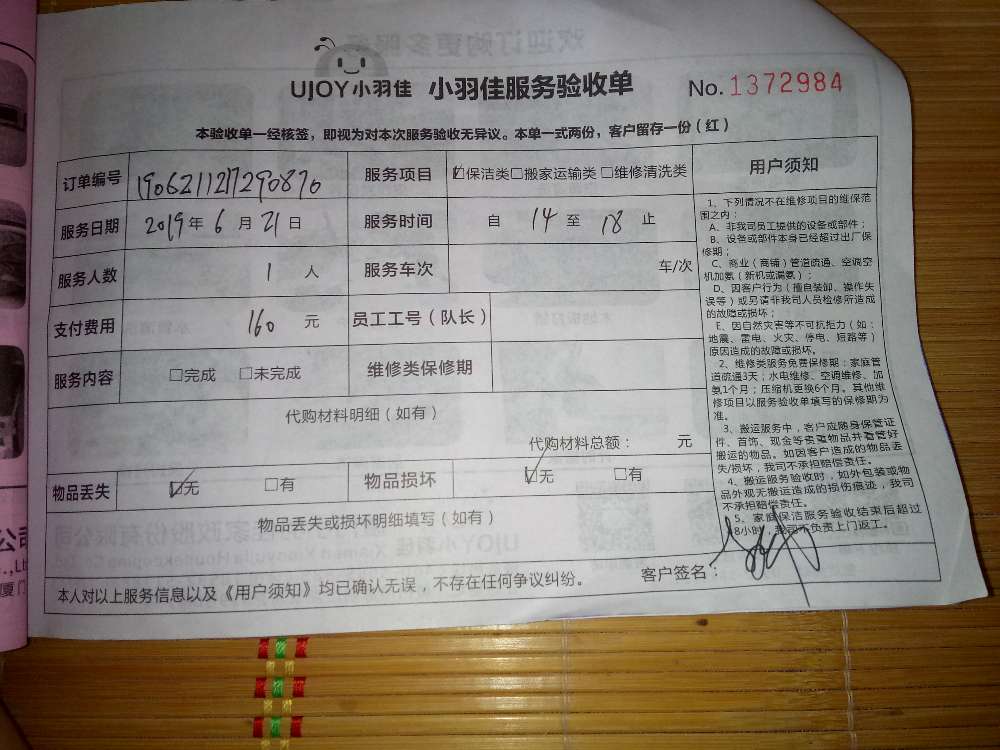 UJOY小羽佳 小羽佳服务验收单 No.1372984
本验收单一经核签，即视为对本次服务验收无异议。本单一式两份，客户留存一份（红）
订单编号 1906211217290870 服务项目 ☑保洁类□搬家运输类□维修清洗类
服务日期 2019年6月21日 服务时间 自 14 至 18 止
服务人数 1 人 服务车次 车/次
支付费用 160 元 员工工号（队长）
服务内容 □完成 □未完成 维修类保修期
代购材料明细（如有）
代购材料总额： 元
物品丢失 ☑无 □有 物品损坏 ☑无 □有
物品丢失或损坏明细填写（如有）
用户须知
1、下列情况不在维修项目的维保范
围之内：
A、非我司员工提供的设备或部件；
B、设备或部件本身已经超过出厂保
修期；
C、商业（商铺）管道疏通、空调空
机加氨（新机或漏氨）；
D、因客户行为（擅自装卸、操作失
误等）或另请非我司人员检修所造成
的故障或损坏；
E、因自然灾害等不可抗拒力（如：
地震、雷电、火灾、停电、短路等）
原因造成的故障或损坏。
2、维修类服务免费保修期：家庭管
道疏通3天；水电维修、空调维修、加
氨1个月；压缩机更换6个月。其他维
修项目以服务验收单填写的保修期为
准。
3、搬运服务中，客户应随身保管证
件、首饰、现金等贵重物品并看管好
搬运的物品。如因客户造成的物品丢
失/损坏，我司不承担赔偿责任。
4、搬运服务验收时，如外包装或物
品外观无搬运造成的损伤痕迹，我司
不承担赔偿责任。
5、家庭保洁服务验收结束后超过
8小时，我司不负责上门返工。
客户签名：
本人对以上服务信息以及《用户须知》均已确认无误，不存在任何争议纠纷。